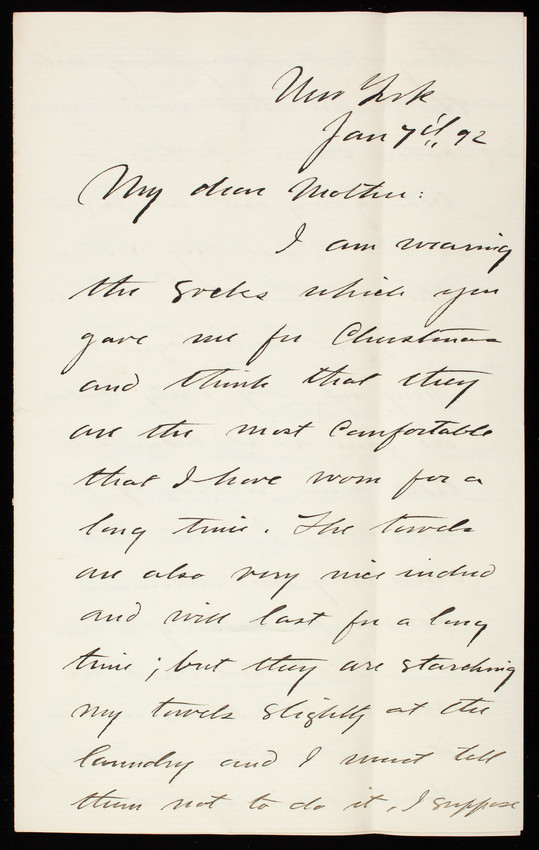 New York
Jan 7th 92
My dear Mother:
I am wearing
the socks which you
gave me for Christmas
and think that they
are the most comfortable
that I have worn for a
long time. The towels
are also very nice indeed
and will last for a long
time; but they are starching
my towels slightly at the
laundry and I must tell
them not to do it, I suppose